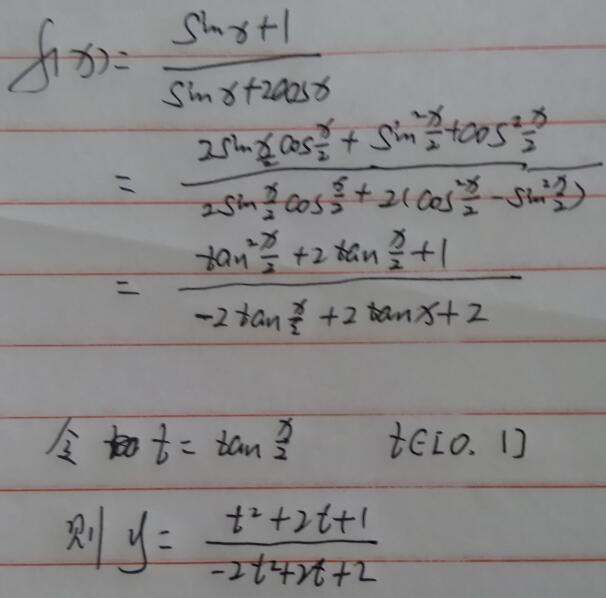 f(x) = (sin x + 1) / (sin x + 2cos x)
= (2 sin x/2 cos x/2 + sin² x/2 + cos² x/2) / (2 sin x/2 cos x/2 + 2(cos² x/2 - sin² x/2))
= (tan² x/2 + 2 tan x/2 + 1) / (-2 tan x/2 + 2 tan x + 2)
令 t = tan x/2 t∈[0. 1]
则 y = (t² + 2t + 1) / (-2t² + 2t + 2)